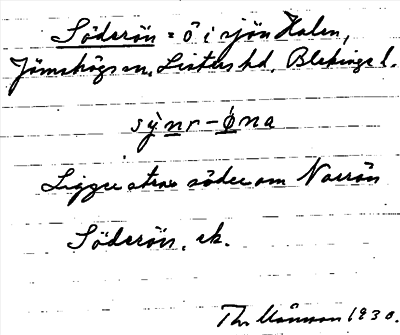 Söderön = ö i sjön Halen,
Jämshögs sn, Listers hd, Blekinge l.
sỳnr-øna
Ligger strax söder om Norrön
Söderön, ek.
1930.